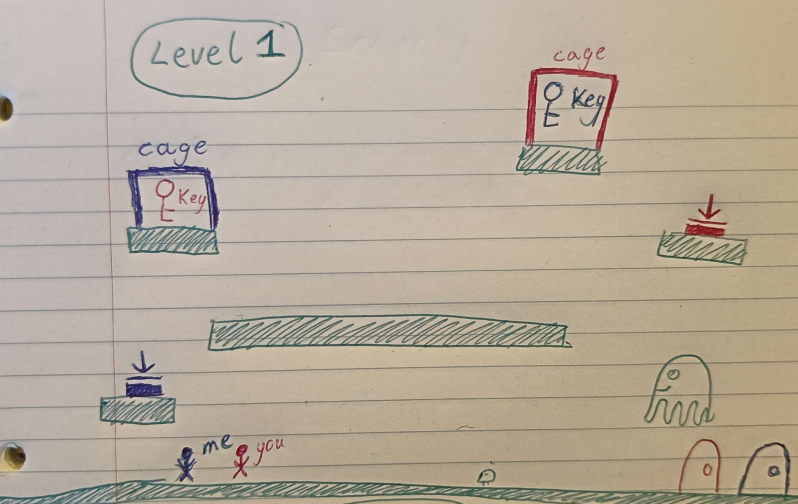 Level 1
cage
Key
cage
Key
me
you